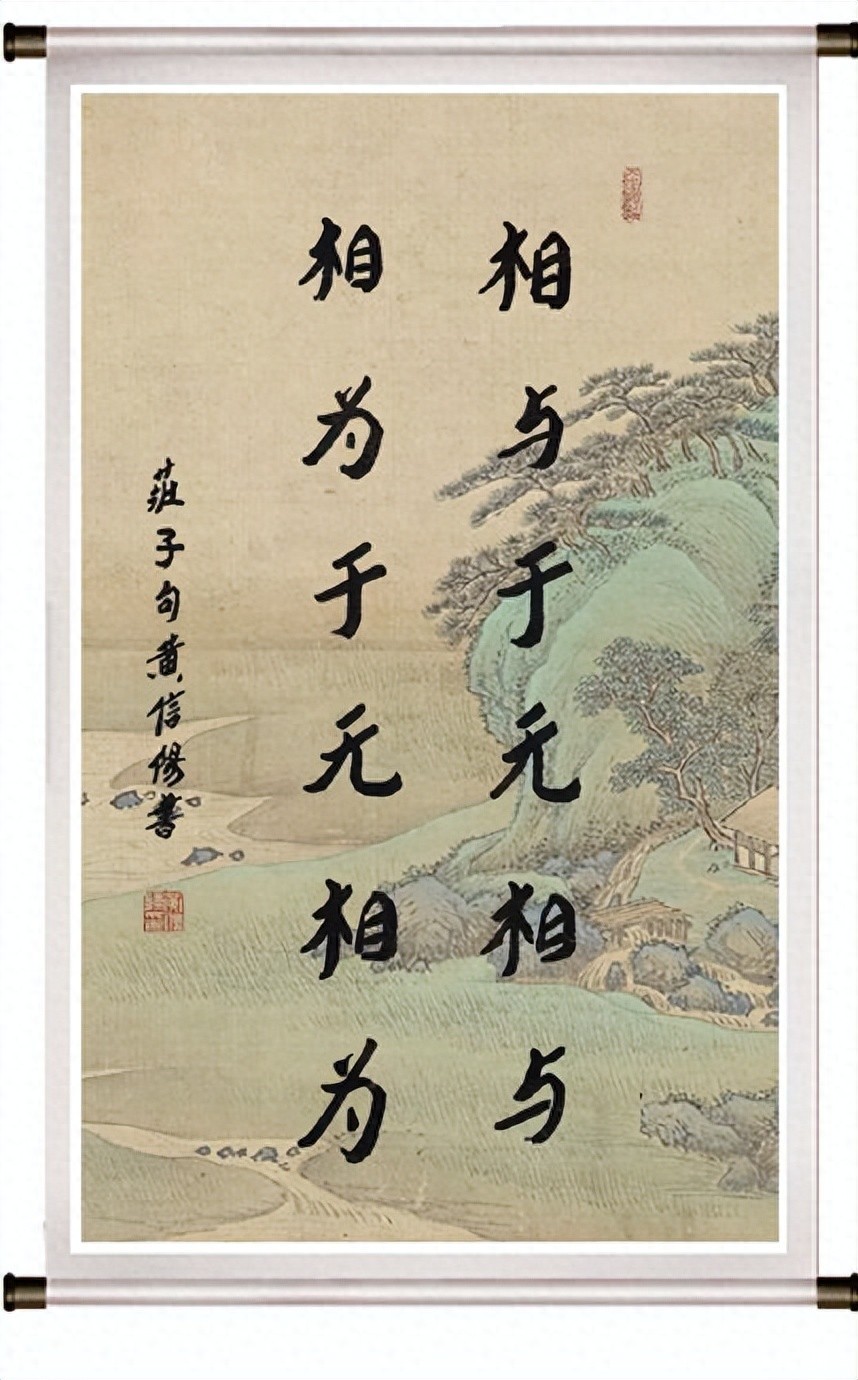 相与于无相与
相为于无相为
莊子句黄信偒書